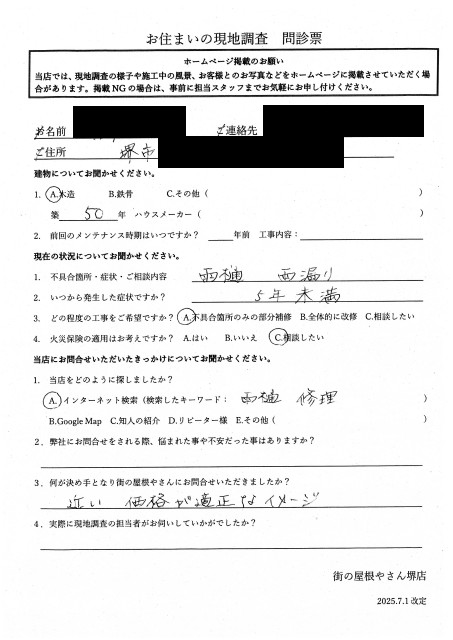 お住まいの現地調査 問診票
ホームページ掲載のお願い
当店では、現地調査の様子や施工中の風景、お客様とのお写真などをホームページに掲載させていただく場
合があります。掲載 NG の場合は、事前に担当スタッフまでお気軽にお申し付けください。
お名前 ご連絡先
ご住所 堺市
建物についてお聞かせください。
1. A.木造 B.鉄骨 C.その他（ ）
築 50 年 ハウスメーカー（ ）
2. 前回のメンテナンス時期はいつですか？ 年前 工事内容：
現在の状況についてお聞かせください。
1. 不具合箇所・症状・ご相談内容 雨樋 雨漏り
2. いつから発生した症状ですか？ 5年未満
3. どの程度の工事をご希望ですか？ A.不具合箇所のみの部分補修 B.全体的に改修 C.相談したい
4. 火災保険の適用はお考えですか？ A.はい B.いいえ C.相談したい
当店にお問合せいただいたきっかけについてお聞かせください。
1. 当店をどのように探しましたか？
A.インターネット検索（検索したキーワード： 雨樋 修理 ）
B.Google Map C.知人の紹介 D.リピーター様 E.その他（ ）
2．弊社にお問合せをされる際、悩まれた事や不安だった事はありますか？
3．何が決め手となり街の屋根やさんにお問合せいただきましたか？
近い 価格が適正なイメージ
4．実際に現地調査の担当者がお伺いしていかがでしたか？
街の屋根やさん堺店
2025.7.1 改定